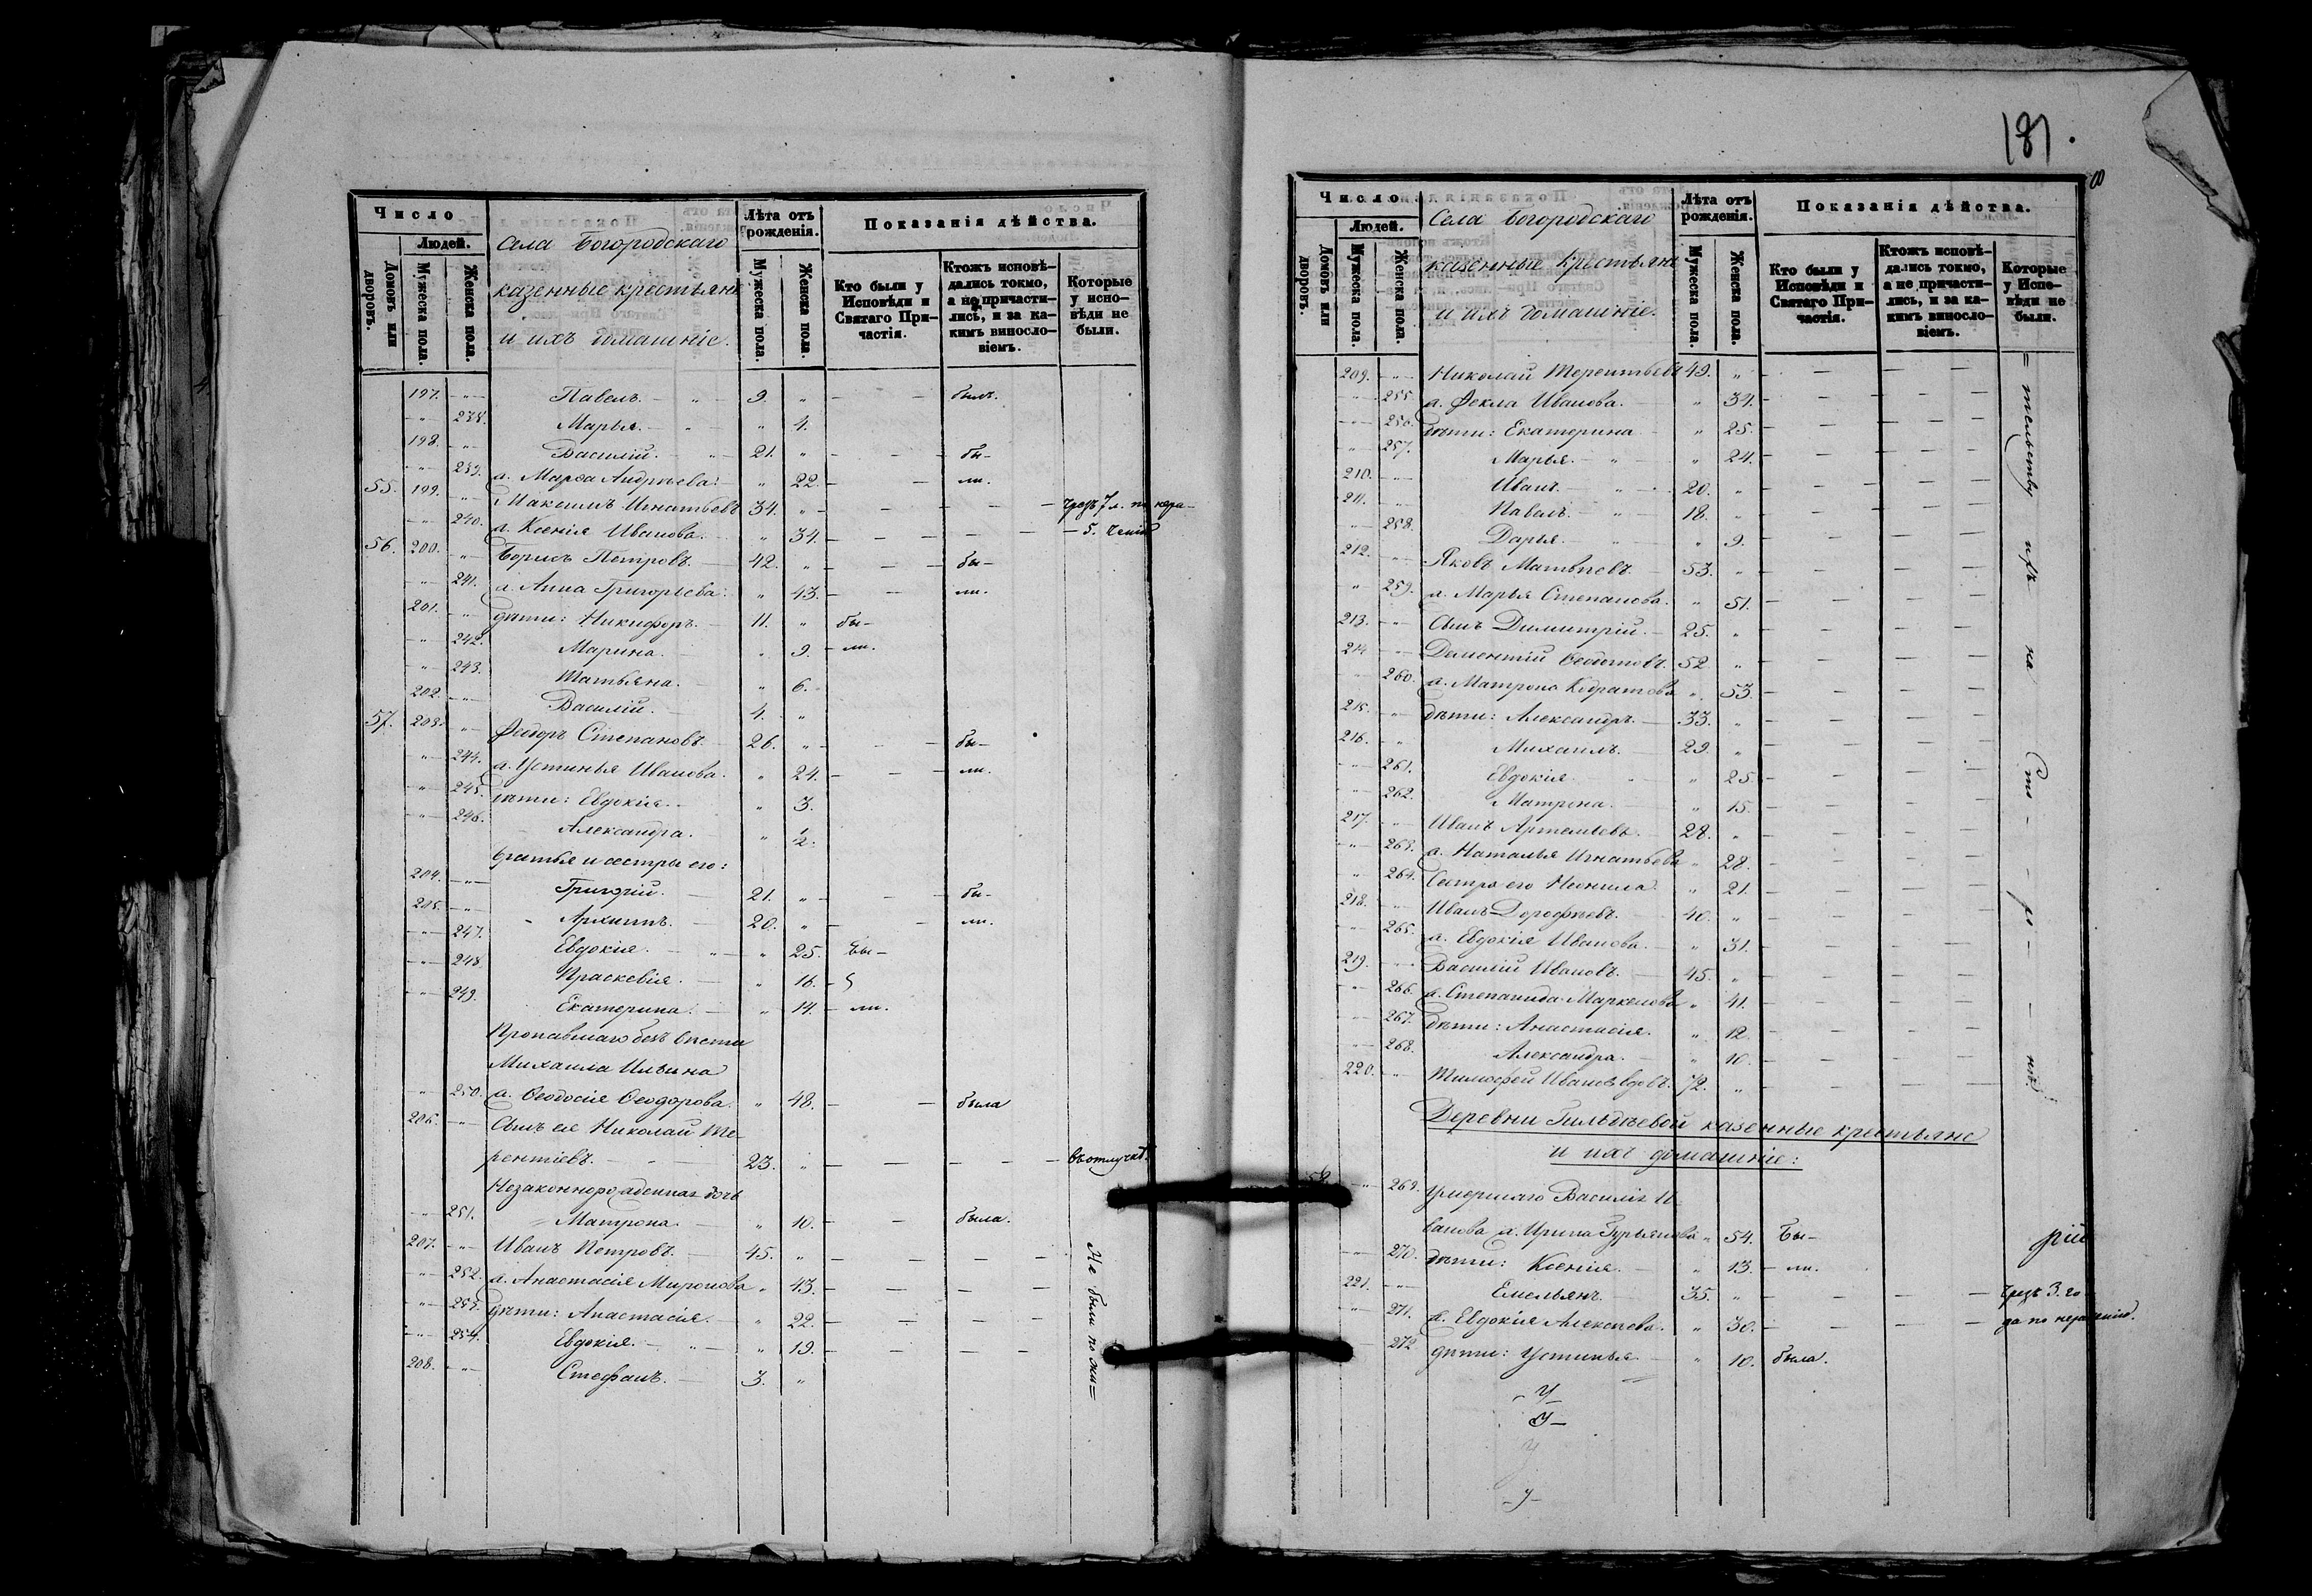 Число
Людей.
Домовъ или дворовъ.
Мужеска пола.
Женска пола.
Села Богородскаго
казенные крестьяне
и ихъ домашніе.
Лѣта отъ рожденія.
Мужеска пола.
Женска пола.
Показанія дѣйства.
Кто были у Исповѣди и Святаго Причастія.
Ктожъ исповѣдались токмо, а не причастились, и за какимъ винословіемъ.
Которые у исповѣди не были.
197. -"- Павелъ. — " — 9. " — — былъ.
-"- 238. Марья. — " — " 4.
198. -"- Василій. — " — 21. " — — бы-
-"- 239. ж. Марѳа Андреева. " 22. — — ли.
55. 199. -"- Максимъ Игнатьевъ 34. " — — — — чрезъ 7 л. по нера-
-"- 240. ж. Ксенія Иванова. " 34. — — — — — 5. ченію
56. 200. -"- Борисъ Петровъ. — 42. " — — — бы-
-"- 241. ж. Анна Григорьева. " 43. — — ли.
201. " дѣти: Никифоръ. — 11. " бы-
" 242. Марина. — " 9. — ли.
-"- 243. Татьяна. — " 6.
202. -"- Василій. — 4. "
57. 203. " Ѳедоръ Степановъ. — 26. " — — — бы-
-"- 244. ж. Устинья Иванова. " 24. — — — ли.
-"- 245. дѣти: Евдокія. — " 3.
-"- 246. Александра. — " 1/2.
братья и сестры его:
204. -"- Григорій. — 21. " — — — бы-
205. -"- Архипъ. — 20. " — — ли.
-"- 247. Евдокія. — " — " 25. бы-
-"- 248. Праскевія. — " 16. —
-"- 249. Екатерина. — " 14. — ли.
Пропавшаго безъ вѣсти
Михаила Ильина
" 250. ж. Ѳеодосія Ѳеодорова. " 48. — — была
206. -"- Сынъ ея Николай Те-
рентіевъ. — " — 23. " — — — — — въ отлучкѣ.
Незаконнорожденная дочь
-"- 251. Матрона. — " 10. — — была.
207. -"- Иванъ Петровъ. — 45. " — — — —
-"- 252. ж. Анастасія Миронова " 43. — — — —
-"- 253. дѣти: Анастасія. — " 22. — — — —
-"- 254. Евдокія. — " — " 19. — — — —
208. -"- Стефанъ. — 3. "
Не были по жи=
181.
Число
Людей.
Домовъ или дворовъ.
Мужеска пола.
Женска пола.
Села Богородскаго
казенные крестьяне
и ихъ домашніе.
Лѣта отъ рожденія.
Мужеска пола.
Женска пола.
Показанія дѣйства.
Кто были у Исповѣди и Святаго Причастія.
Ктожъ исповѣдались токмо, а не причастились, и за какимъ винословіемъ.
Которые у Исповѣди не были.
209. -"- Николай Терентьевъ 49. " — — — —
-"- 255. ж. Ѳекла Иванова. — " 34. — — — —
-"- 256. дѣти: Екатерина — " 25. — — — —
-"- 257. Марья. — " " 24. — — — —
210. -"- Иванъ. — " — 20. " — — — —
211. -"- Павелъ. — " — 18. " — — — —
-"- 258. Дарья. — " " 9. — — — —
212. -"- Яковъ Матвѣевъ. — 53. " — — — —
" 259. ж. Марья Степанова. — " 51. — — — —
213. -"- Сынъ Димитрій. — 25. " — — — —
214 -"- Дементій Ѳедотовъ. 52 " — — — —
" 260. ж. Матрона Кодратова " 53. — — — —
215. " дѣти: Александръ. — 33. " — — — —
216. -"- Михаилъ. — 29 " — — — —
-"- 261. Евдокія. — " " 25 — — — —
-"- 262. Матрона. — " 15. — — — —
217. -"- Иванъ Артемьевъ. — 28. " — — — —
-"- 263. ж. Наталья Игнатьева " 28. — — — —
" 264. Сестра его Неонила. " 21. — — — —
218. -"- Иванъ Дорофѣевъ. — 40. " — — — —
" 265. ж. Евдокія Иванова. — " 31. — — — —
219. -"- Василій Ивановъ. — 45. " — — — —
-"- 266. ж. Степанида Маркелова " 41. — — — —
-"- 267. дѣти: Анастасія. — " 12. — — — —
-"- 268. Александра. — " 10. — — — —
220. -"- Тимофей Ивановъ вдовъ. 72. " — — — —
= тельству ихъ на Сто - - ро - - нѣ.
казенные крестьяне
и ихъ домашніе:
-"- 269. Умершаго Василія И-
ванова ж. Ирина Гурьянова " 54. бы-
-"- 270. дѣти: Ксенія. — " 13. — ли.
221. -"- Емельянъ. — 35. " — — — — чрезъ 3. го-
-"- 271. ж. Евдокія Алексѣева. " 30. — — — — да по нераченію.
272 дѣти: Устинья. — " 10. была.